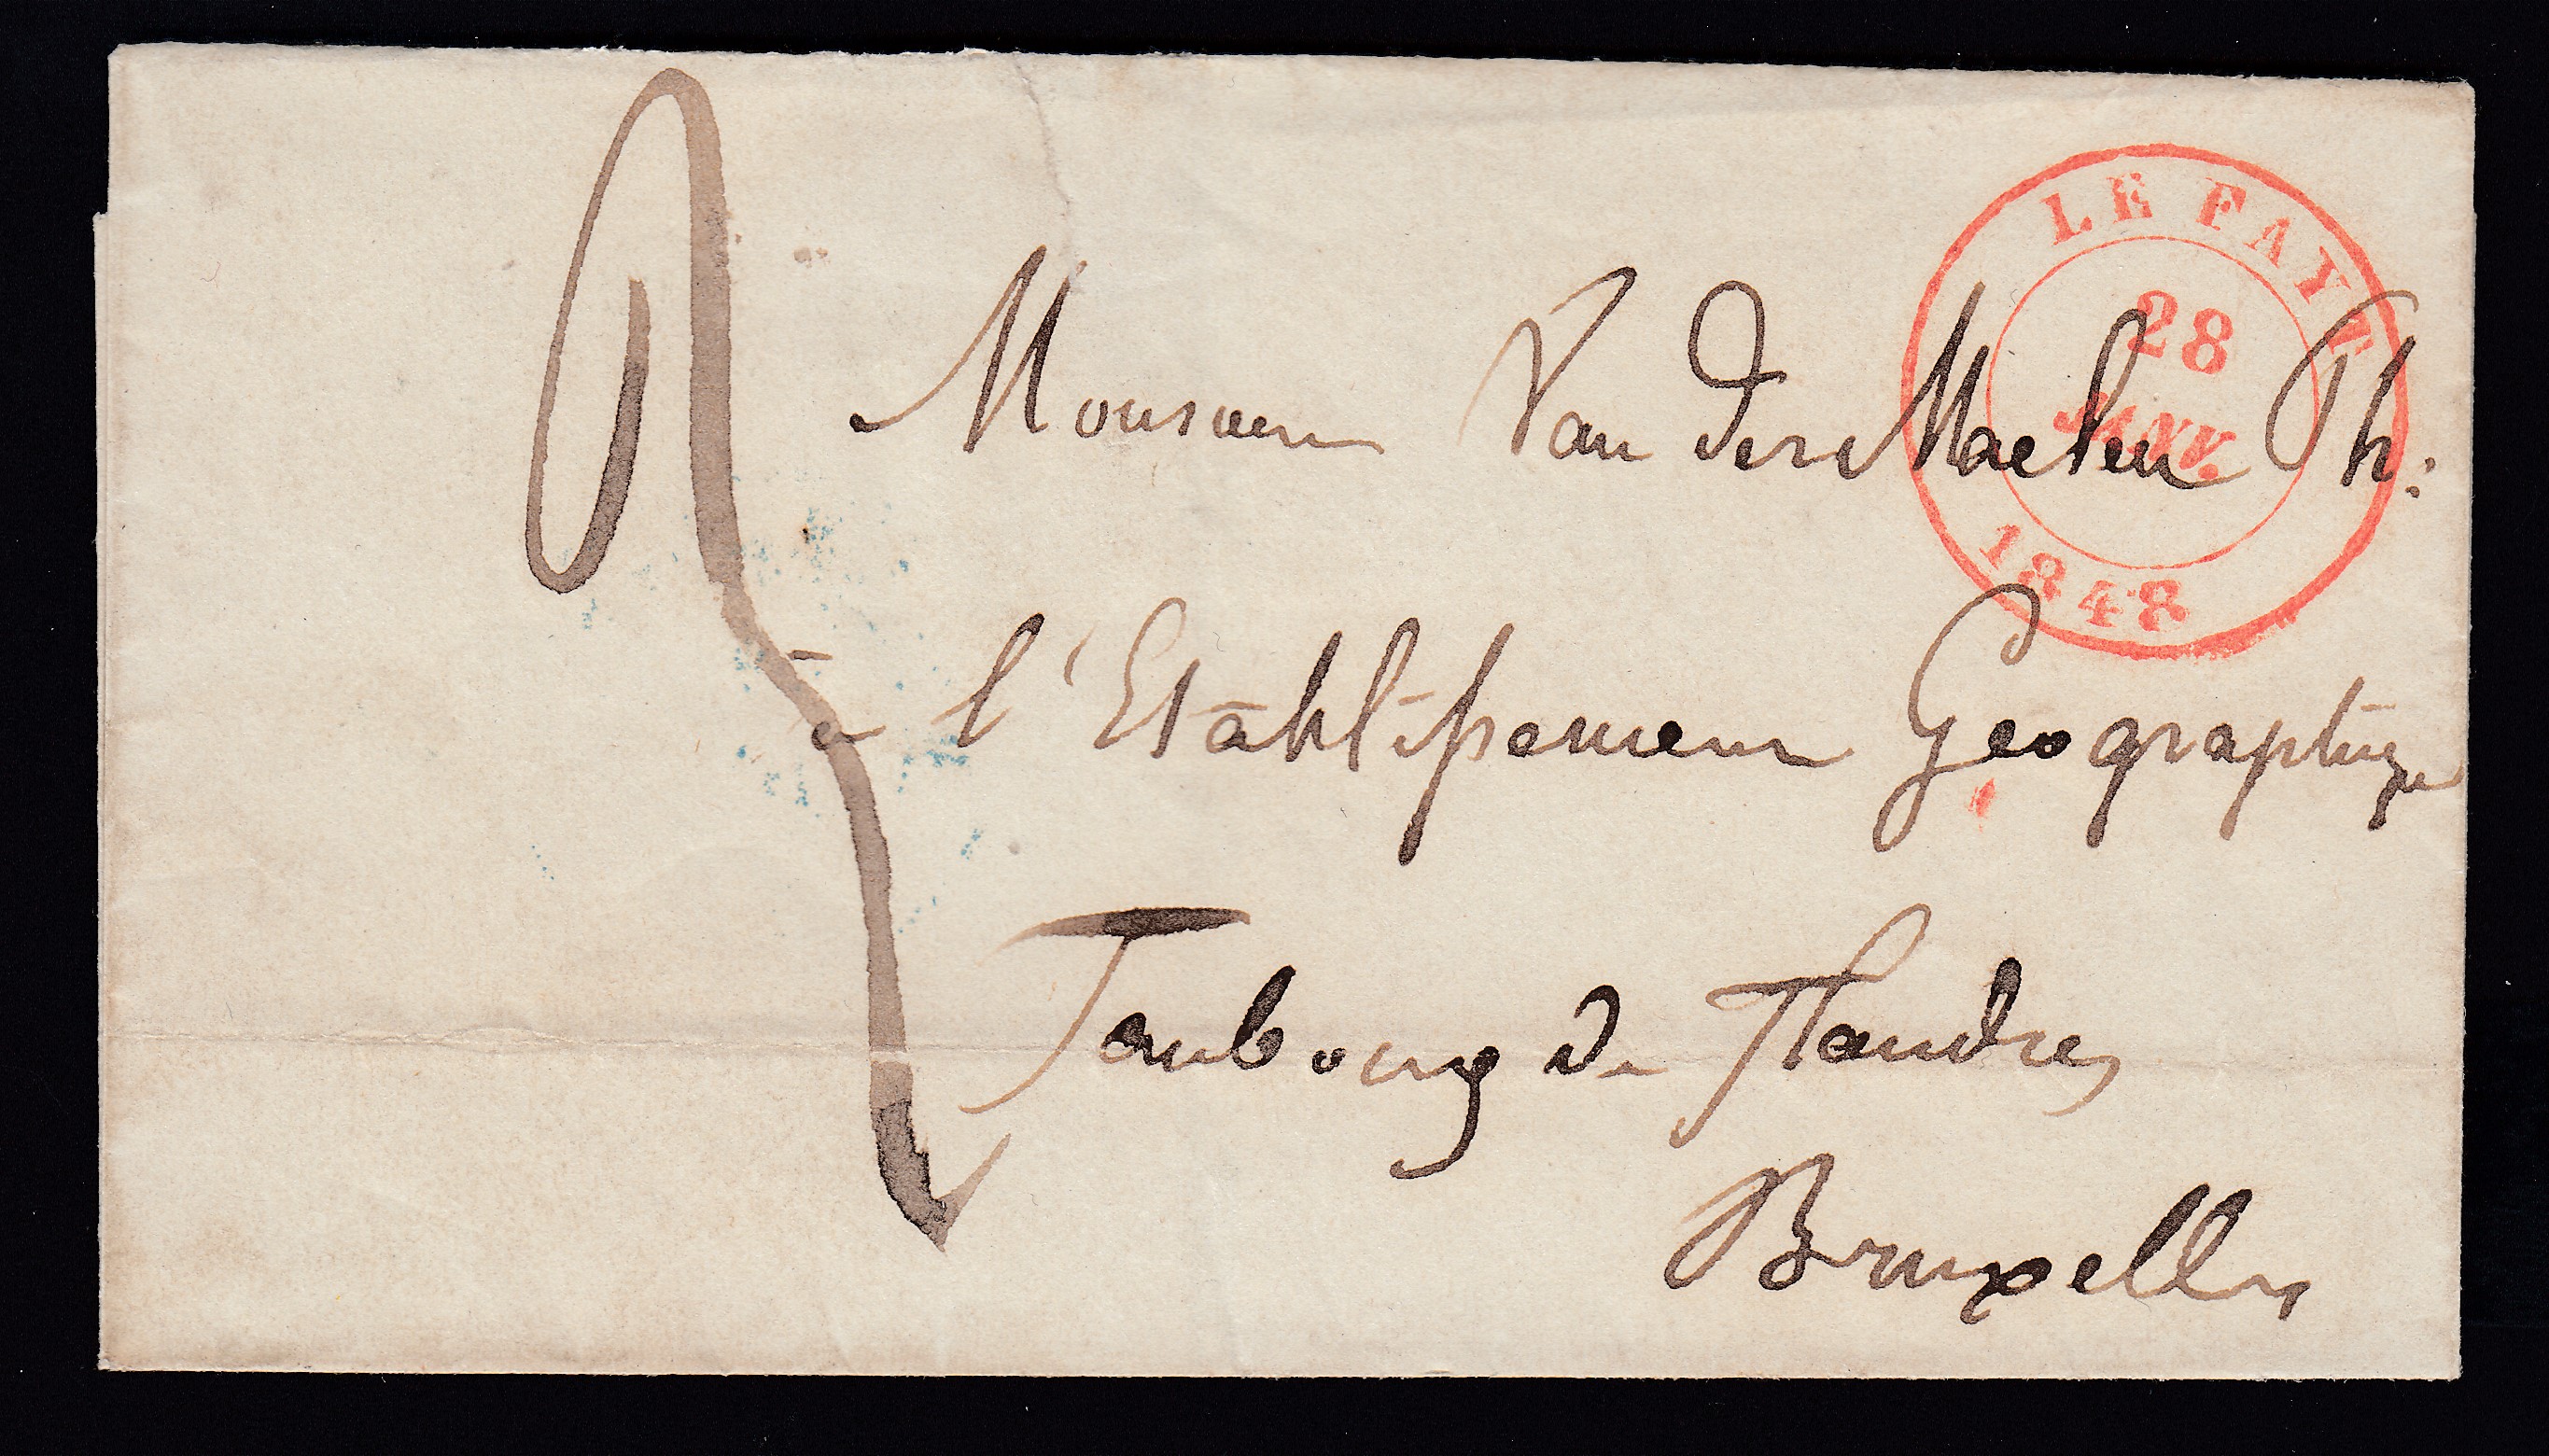 LE FAYT
28
JANV.
1848
Monsieur Van der Maelen Ph:
à l'Etablissement Geographique
Faubourg de Flandres
Bruxelles